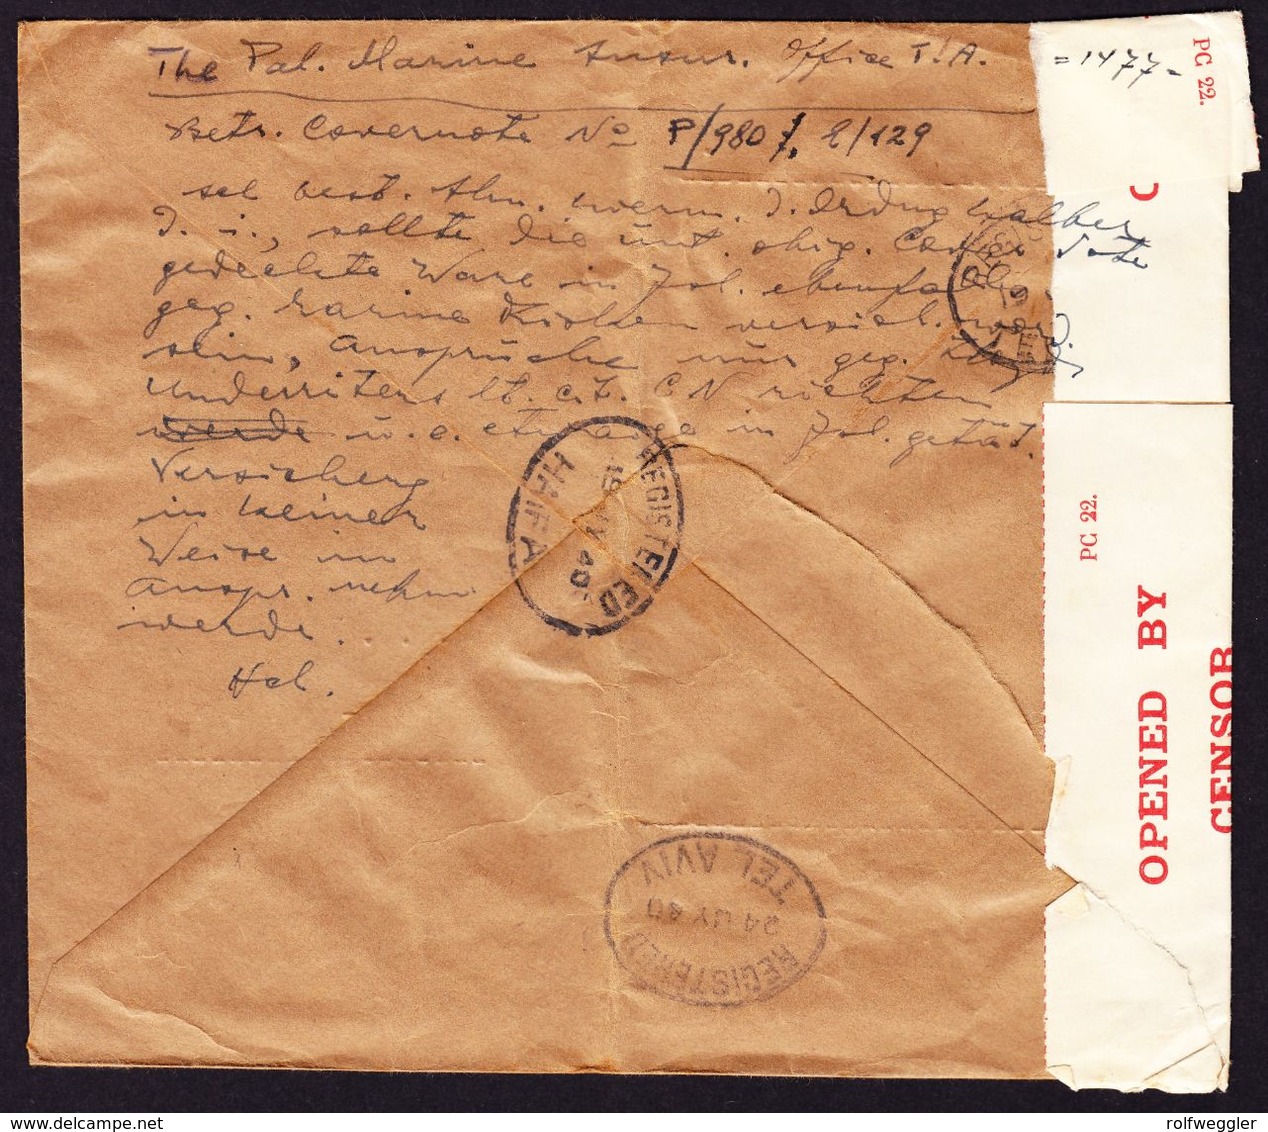 The Pal. Marine Insur. Office T.A.
= 1477 -
PC 22.
Betr. Covernote No P/9807, 2/129
C
sol best. Ihn. wenn. d. Ordng halber
D. i., sollte die unt. obig. Cover Note
gedeckte Ware in Pol. ebenfalls
geg. Marine Risiken versich. word.
sein, Ansprüche nur geg.
Underriters lt. C N richten
werde u. a. etwaige in Pol. getät.
Versicherg
in keiner
Weise in
Anspr. nehm
werde.
Hal.
REGISTERED
19 JY 40
HAIFA
PC 22.
OPENED BY
CENSOR
TEL AVIV
24 JY 40
REGISTERED
rolfweggler